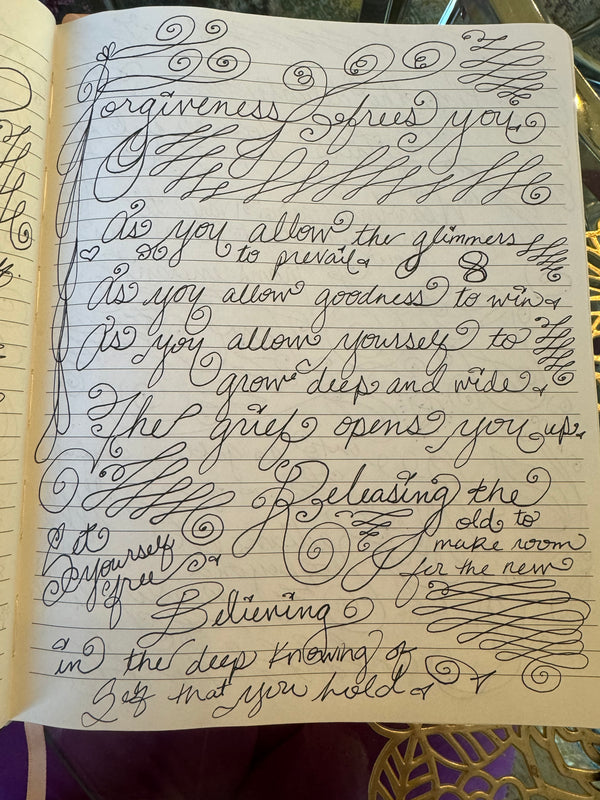 Forgiveness frees you
As you allow the glimmers
to prevail
As you allow goodness to win
As you allow yourself to
grow deep and wide
The grief opens you up
Releasing the
old to
make room
for the new
Set
yourself
free
Believing
in the deep knowing of
Self that you hold